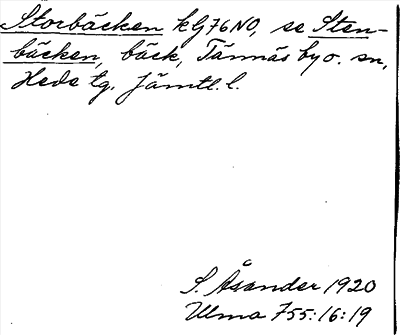 Storbäcken kG76NO, se Sten-
bäcken, bäck, Tännäs by o. sn,
Hede tg. Jämtl. l.
S. Åsander 1920
Ulma 755:16:19